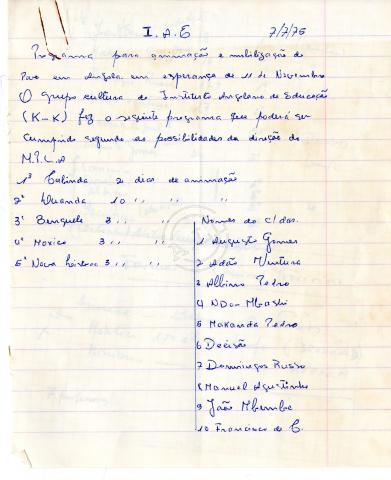 I. A. E 7/7/75
Programa para animação e mobilização do
Povo em Angola em esperança de 11 de Novembro
O grupo cultura do Instituto Angolano de Educação
(K-K) fez o seguinte programa que poderá ser
Cumprido segundo as possibilidades da direção do
M.P.L.A
1º Cabinda 2 dias de animação
2º Luanda 10 ,, ,, ,,
3º Benguela 3 ,, ,, ,,
4º Moxico 3 ,, ,, ,,
5º Nova Lisboa 3 ,, ,, ,,
Nomes do c/das.
1 Augusto Gomes
2 Adão Ventura
3 Albino Pedro
4 NDom Mbashi
5 Makanda Pedro
6 Decisão
7 Domingos Russo
8 Manuel Agostinho
9 João Mbumba
10 Francisco do C.